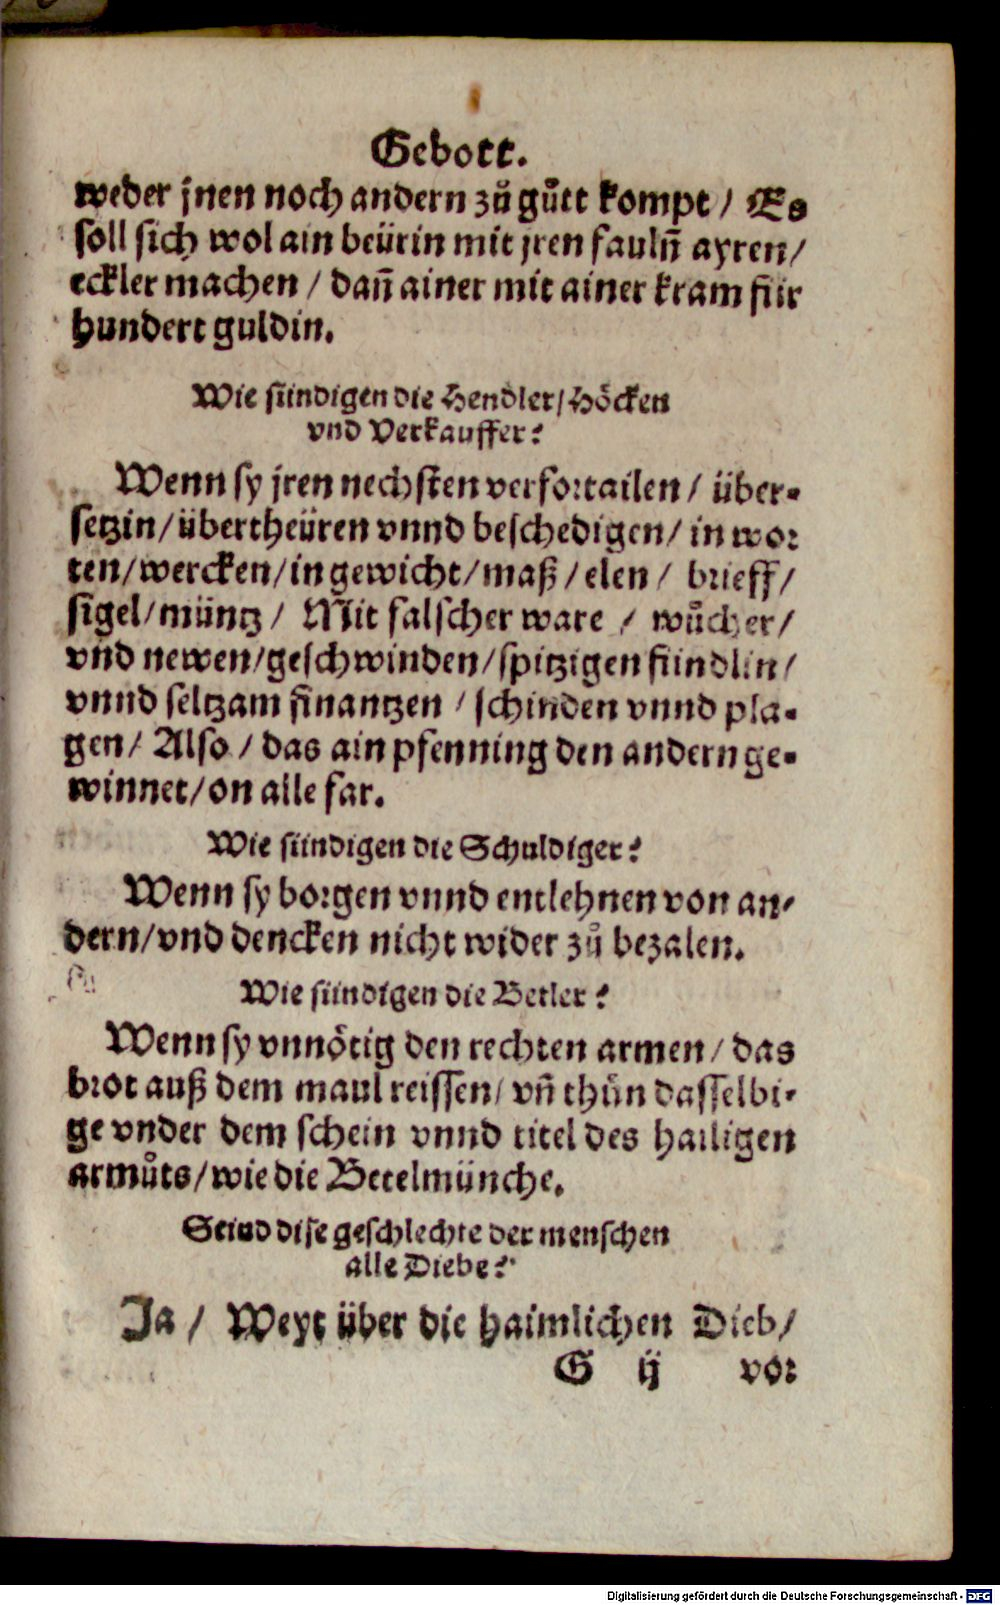 Gebott.
weder jnen noch andern zů gůtt kompt / Es
soll sich wol ain beürin mit jren fauln̄ ayren /
eckler machen / dan̄ ainer mit ainer kram für
hundert guldin.
Wie sündigen die Hendler / Höcken
vnd Verkauffer?
Wenn sy jren nechsten verfortailen / über-
setzin / übertheüren vnnd beschedigen / in wor
ten / wercken / in gewicht / maß / elen / brieff /
sigel / müntz / Mit falscher ware / wůcher /
vnd newen / geschwinden / spitzigen fündlin /
vnnd seltzam finantzen / schinden vnnd pla-
gen / Also / das ain pfenning den andern ge-
winnet / on alle far.
Wie sündigen die Schuldiger?
Wenn sy borgen vnnd entlehnen von an-
dern / vnd dencken nicht wider zů bezalen.
Wie sündigen die Betler?
Wenn sy vnnötig den rechten armen / das
brot auß dem maul reissen / vn̄ thůn dasselbi-
ge vnder dem schein vnnd titel des hailigen
armůts / wie die Betelmünche.
Seind dise geschlechte der menschen
alle Diebe?
Ja / Weyt über die haimlichen Dieb /
G ij vor
Digitalisierung gefördert durch die Deutsche Forschungsgemeinschaft - DFG